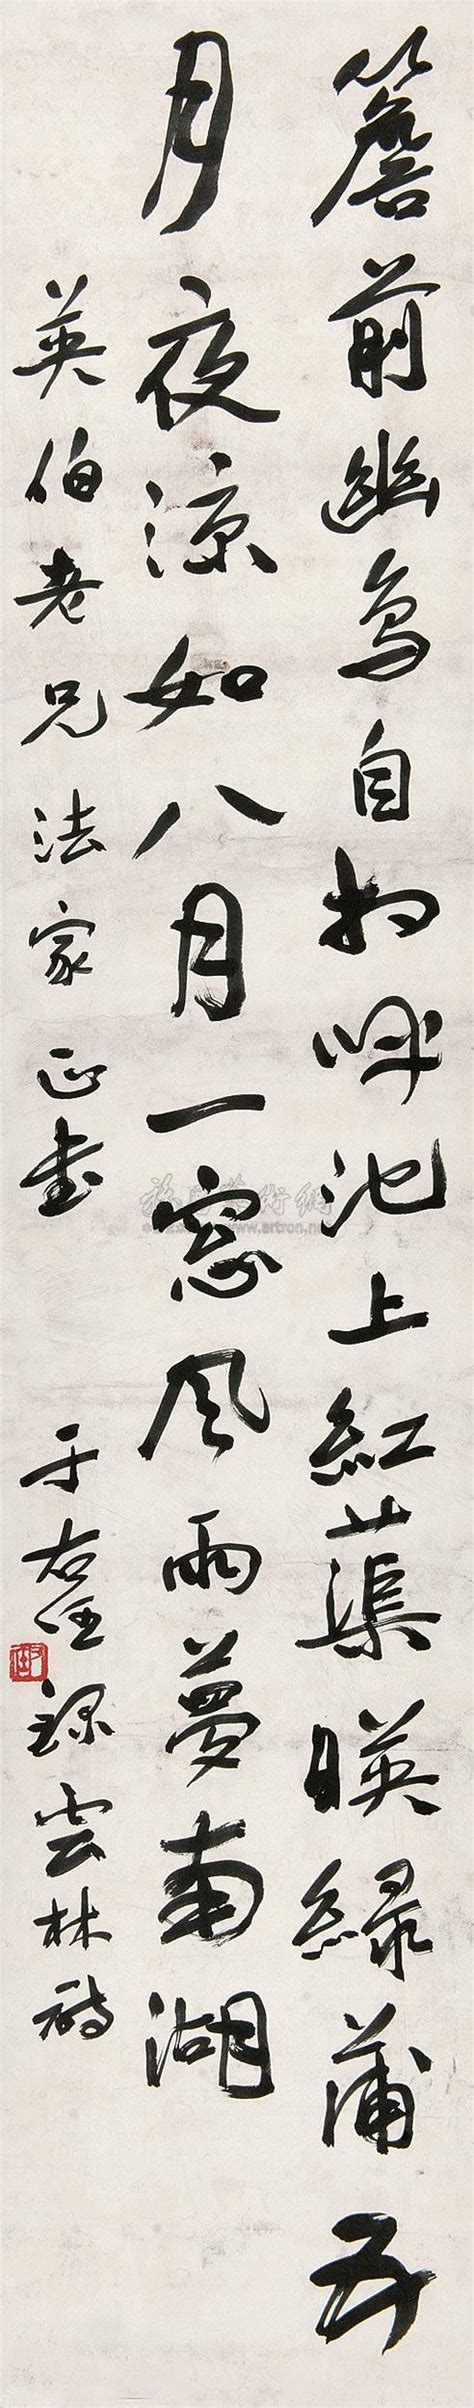 簷前幽鳥自相呼池上紅蕖暎緑蒲五
月夜涼如八月一窗風雨夢南湖
英伯老兄法家正書
于右任錄雲林詩
www.artron.net